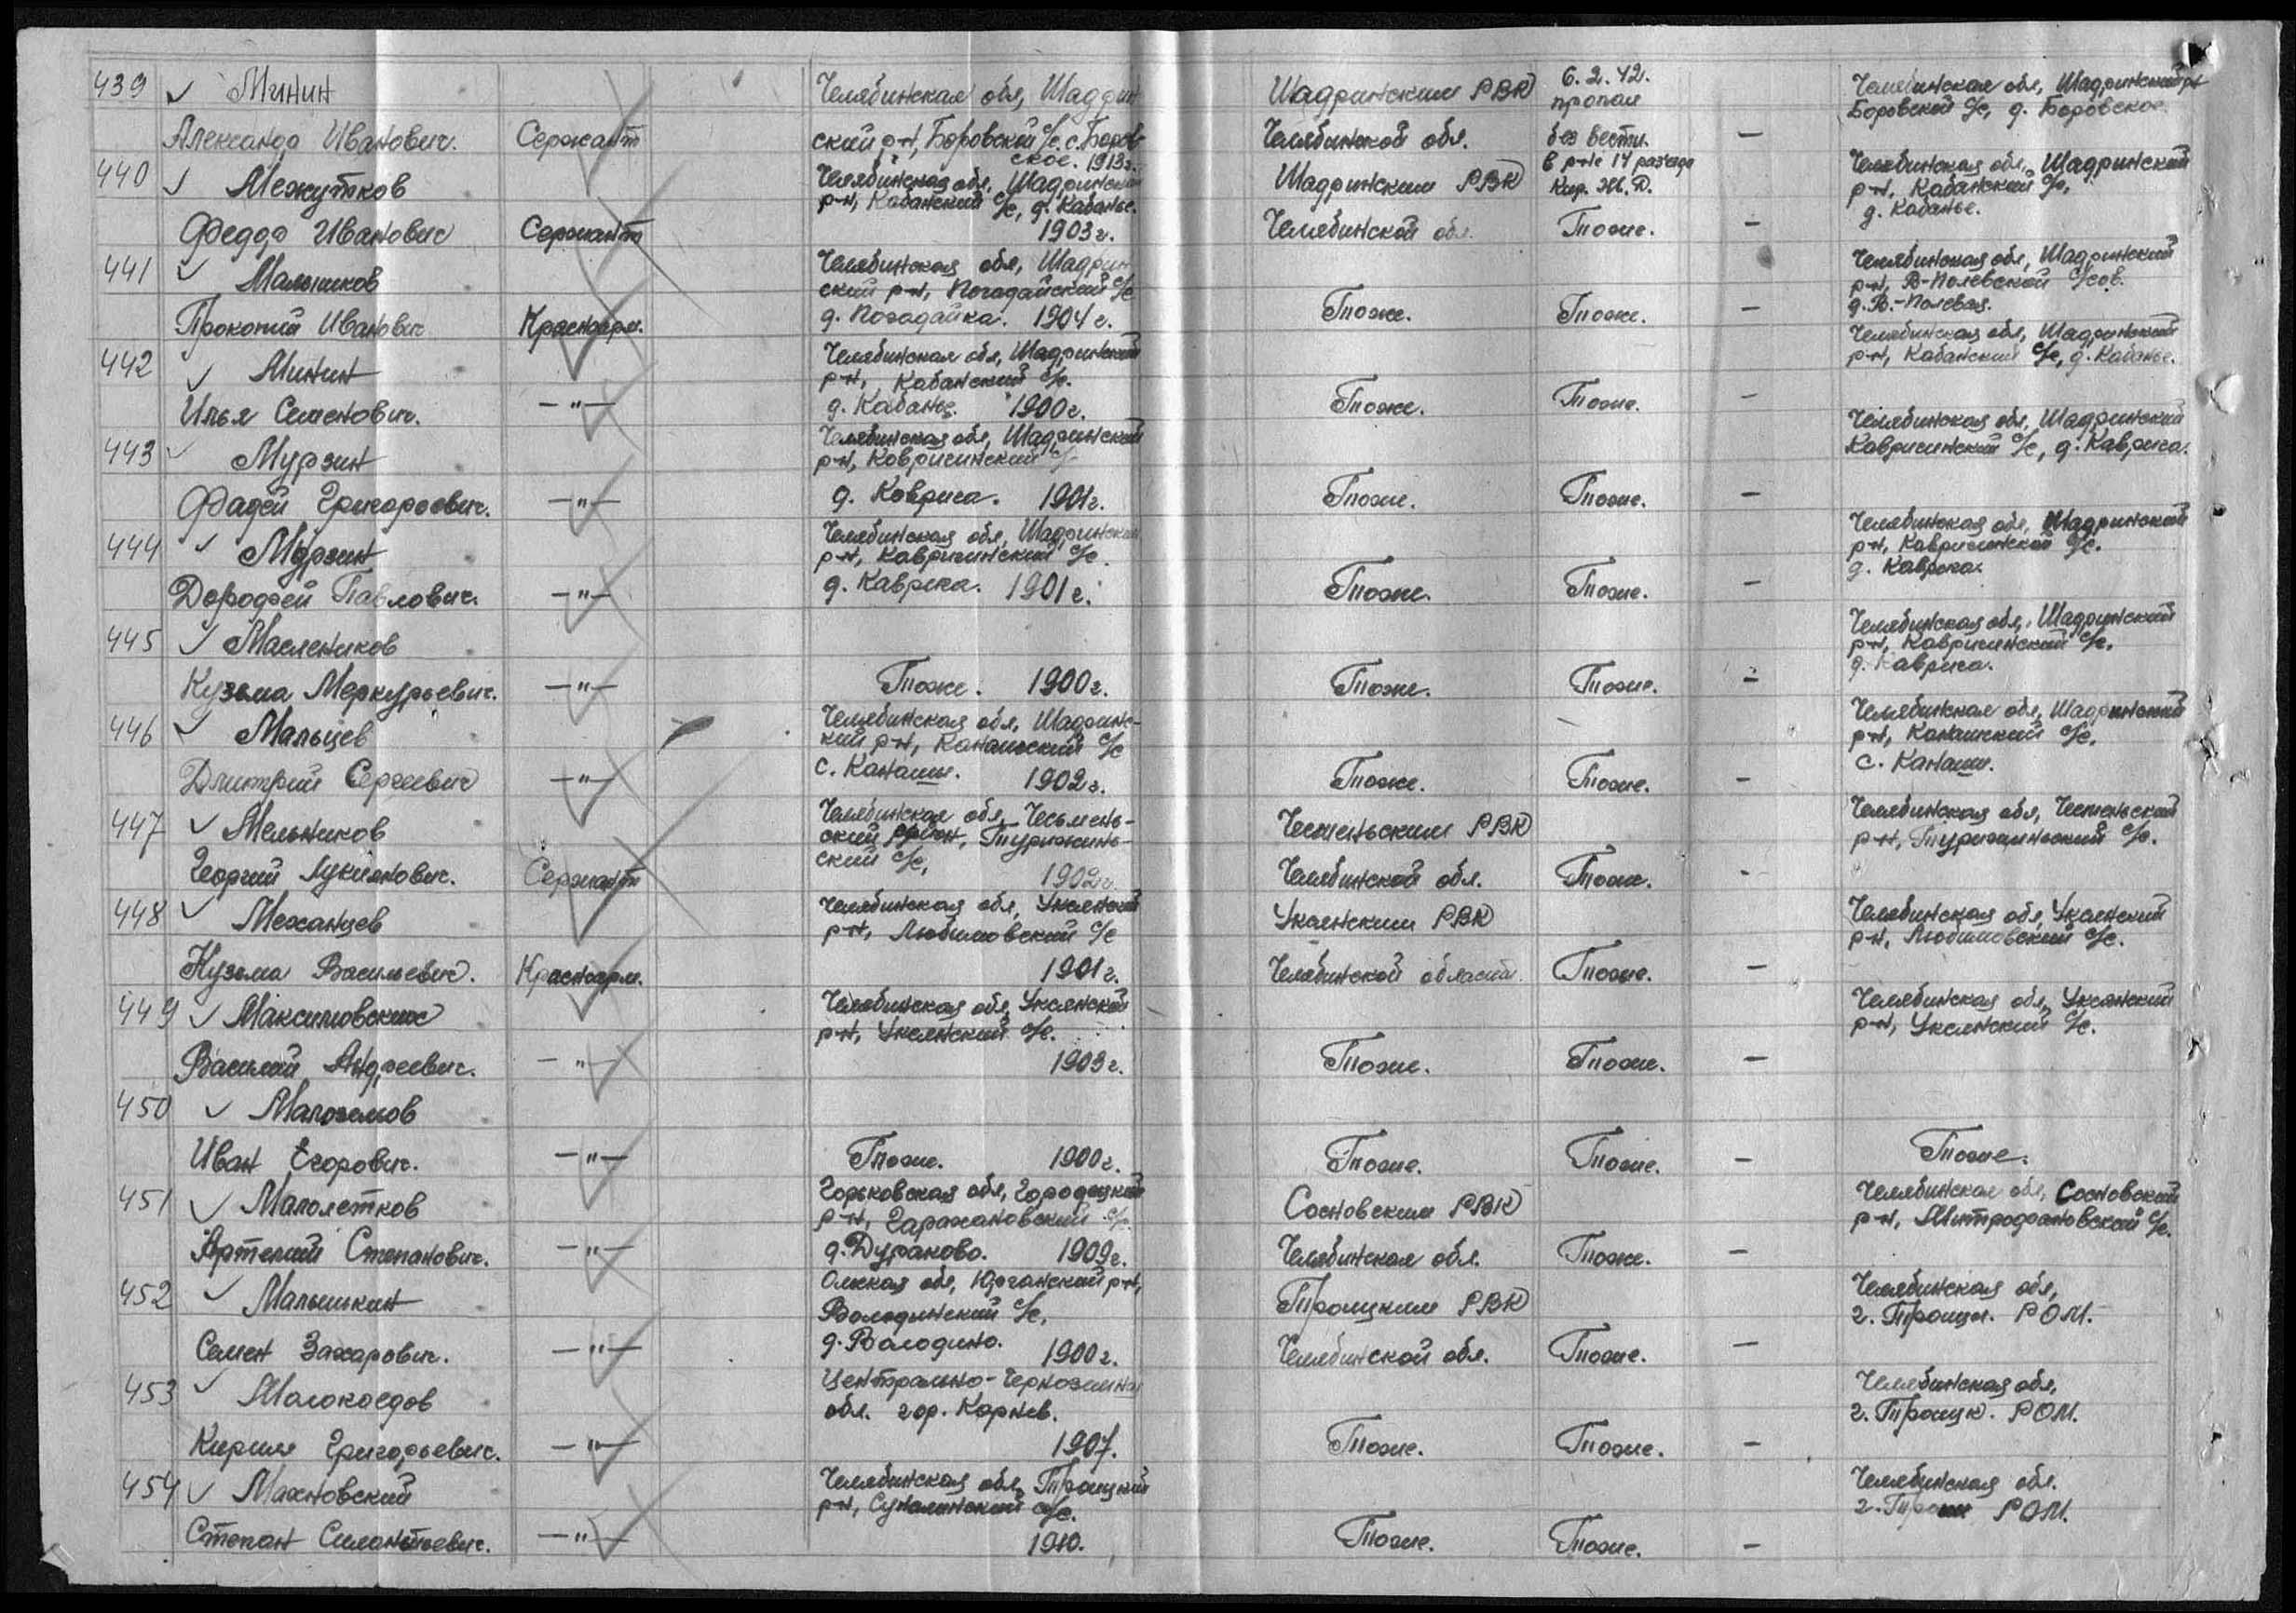 439 Минин
Александр Иванович. Сержант
Челябинская обл, Шадрин
ский р-н, Боровской с/с. с. Боров-
ское. 1913г.
Шадринским РВК
Челябинской обл.
6.2.42.
пропал
без вести.
в р-не 14 раз'езда
Кир. Ж.Д.
—
Челябинская обл, Шадринский р-н
Боровской с/с, д. Боровское.
440 Межутков
Федор Иванович Сержант
Челябинская обл, Шадринский
р-н, Кабанский с/с, д. Кабанье.
1903г.
Шадринским РВК
Челябинской обл.
Тоже.
—
Челябинская обл, Шадринский
р-н, Кабанский с/с,
д. Кабанье.
441 Малышков
Прокопий Иванович Красноарм.
Челябинская обл, Шадрин
ский р-н, Погадайский с/с
д. Погадайка. 1904г.
Тоже. Тоже. —
Челябинская обл, Шадринский
р-н, В-Полевской с/сов.
д. В.-Полевая.
442 Минин
Илья Семенович. —"—
Челябинская обл, Шадринский
р-н, Кабанский с/с.
д. Кабанье. 1900г.
Тоже. Тоже. —
Челябинская обл, Шадринский
р-н, Кабанский с/с, д. Кабанье.
443 Мурзин
Фадей Григорьевич. —"—
Челябинская обл, Шадринский
р-н, Ковригинский с/с
д. Коврига. 1901г.
Тоже. Тоже. —
Челябинская обл, Шадринский
Кавригинский с/с, д. Каврига.
444 Мурзин
Дорофей Павлович. —"—
Челябинская обл, Шадринский
р-н, Кавригинский с/с.
д. Каврига. 1901г.
Тоже. Тоже. —
Челябинская обл, Шадринский
р-н, Кавригинской с/с.
д. Каврига.
445 Маслеников
Кузьма Меркурьевич. —"—
Тоже. 1900г.
Тоже. Тоже. —
Челябинская обл, Шадринский
р-н, Кавригинский с/с.
д. Каврига.
446 Мальцев
Дмитрий Сергеевич —"—
Челябинская обл, Шадринс-
кий р-н, Канашский с/с
с. Канаши. 1902г.
Тоже. Тоже. —
Челябинская обл, Шадринский
р-н, Канашский с/с.
с. Канаши.
447 Мельников
Георгий Лукиянович. Сержант
Челябинская обл, Чесьмень-
ский район,
ский с/с, 1902г.
Чесменьским РВК
Челябинской обл.
Тоже. -
Челябинская обл, Чесменьский
р-н, с/с.
448 Механцев
Кузьма Васильевич. Красноарм.
Челябинская обл, Уксянской
р-н, Любимовский с/с
1901г.
Уксянским РВК
Челябинской области.
Тоже. —
Челябинская обл, Уксянский
р-н, Любимовский с/с.
449 Максимовских
Василий Андреевич. —"—
Челябинская обл, Уксянской
р-н, Уксянский с/с.
1903г.
Тоже. Тоже. —
Челябинская обл, Уксянский
р-н, Уксянский с/с.
450 Малоземов
Иван Егорович. —"—
Тоже. 1900г.
Тоже. Тоже. — Тоже.
451 Малолетков
Артемий Степанович. —"—
Горьковская обл, Городецкий
р-н, с/с.
д. Дураково. 1909г.
Сосновским РВК
Челябинская обл.
Тоже. —
Челябинская обл, Сосновский
р-н, Митрофановский с/с.
452 Малышкин
Семен Захарович. —"—
Омская обл, Юрганский р-н,
Володинский с/с,
д. Володино. 1900г.
Троицким РВК
Челябинской обл.
Тоже. —
Челябинская обл,
г. Троицк. РОМ.
453 Молокоедов
Кирилл Григорьевич. —"—
Центрально-Черноземная
обл. гор. Карнев.
1907.
Тоже. Тоже. —
Челябинская обл,
г. Троицк. РОМ.
454 Махновский
Степан Силантьевич. —"—
Челябинская обл, Троицкий
р-н, с/с.
1910.
Тоже. Тоже. —
Челябинская обл.
г. Троицк РОМ.